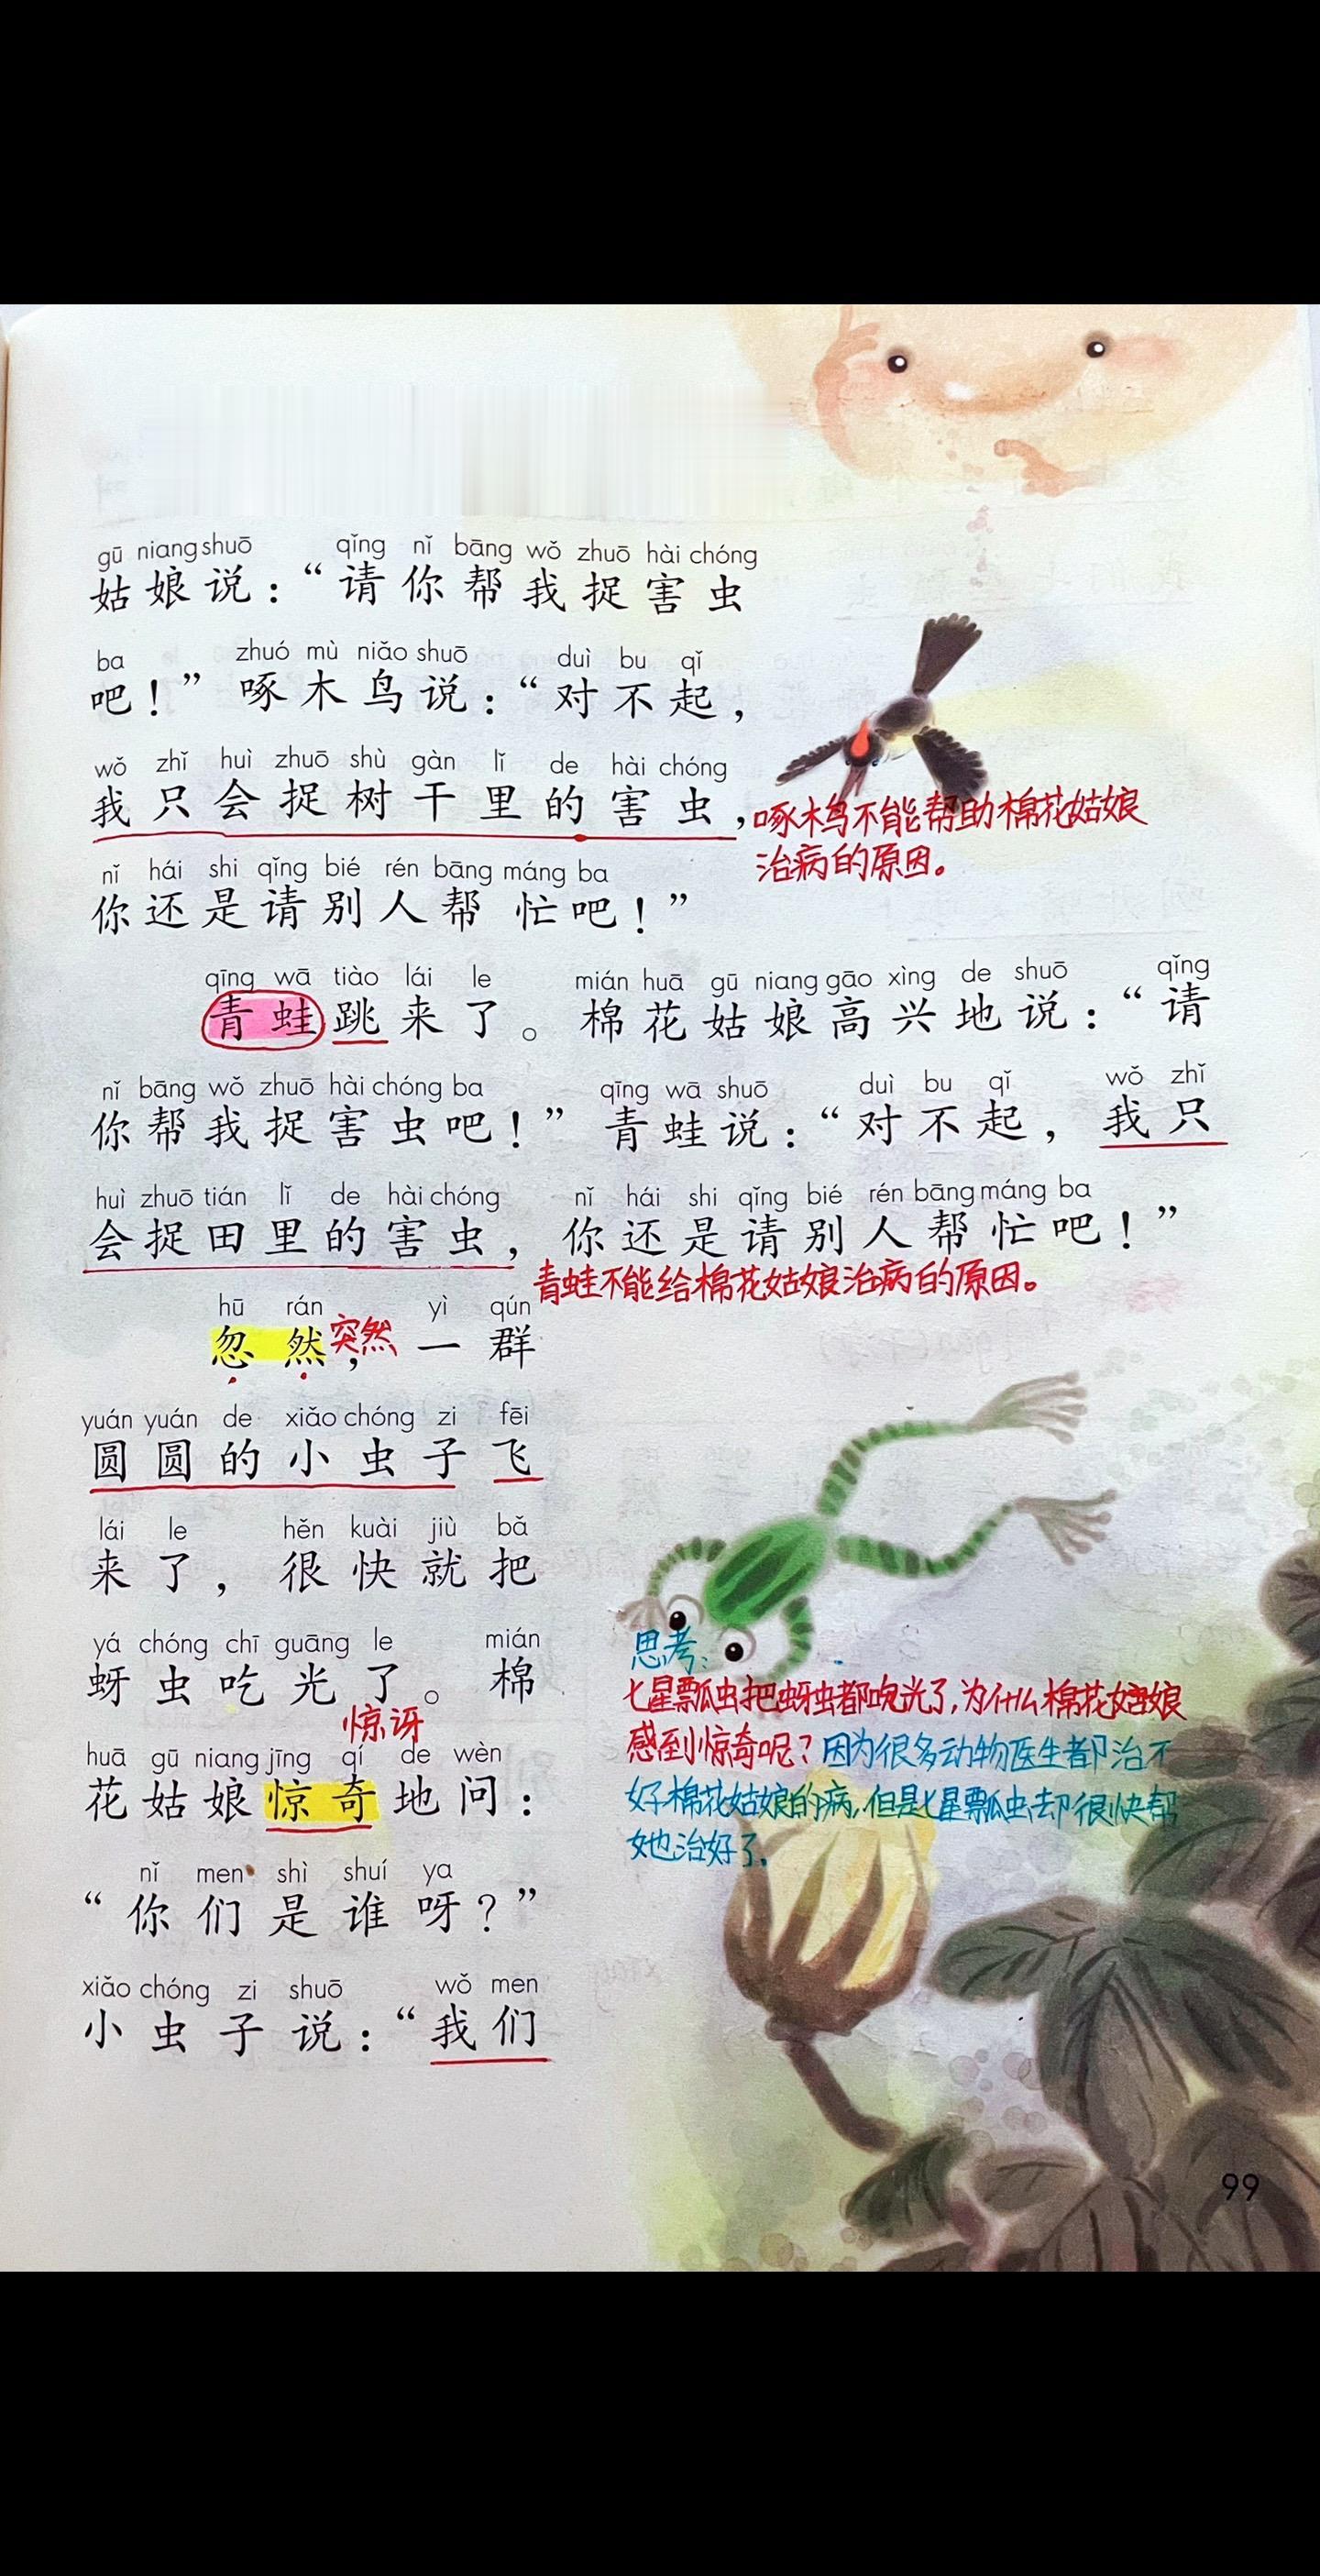 gū niang shuō qǐng nǐ bāng wǒ zhuō hài chóng
姑娘说：“请你帮我捉害虫
ba zhuó mù niǎo shuō duì bu qǐ
吧！”啄木鸟说：“对不起，
wǒ zhǐ huì zhuō shù gàn lǐ de hài chóng
我只会捉树干里的害虫，
啄木鸟不能帮助棉花姑娘
治病的原因。
nǐ hái shi qǐng bié rén bāng máng ba
你还是请别人帮忙吧！”
qīng wā tiào lái le mián huā gū niang gāo xìng de shuō qǐng
青蛙跳来了。棉花姑娘高兴地说：“请
nǐ bāng wǒ zhuō hài chóng ba qīng wā shuō duì bu qǐ wǒ zhǐ
你帮我捉害虫吧！”青蛙说：“对不起，我只
huì zhuō tián lǐ de hài chóng nǐ hái shi qǐng bié rén bāng máng ba
会捉田里的害虫，你还是请别人帮忙吧！”
青蛙不能给棉花姑娘治病的原因。
hū rán yì qún
忽然，一群
突然
yuán yuán de xiǎo chóng zi fēi
圆圆的小虫子飞
lái le hěn kuài jiù bǎ
来了，很快就把
yá chóng chī guāng le mián
蚜虫吃光了。棉
惊讶
huā gū niang jīng qí de wèn
花姑娘惊奇地问：
nǐ men shì shuí ya
“你们是谁呀？”
xiǎo chóng zi shuō wǒ men
小虫子说：“我们
思考：
七星瓢虫把蚜虫都吃光了，为什么棉花姑娘
感到惊奇呢？因为很多动物医生都治不
好棉花姑娘的病，但是七星瓢虫却很快帮
她治好了。
99